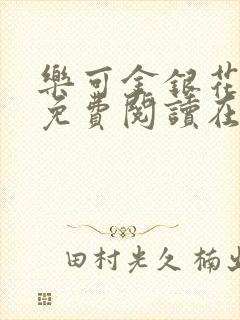 樂可金銀花
免費閱讀在
田村光久 楠出